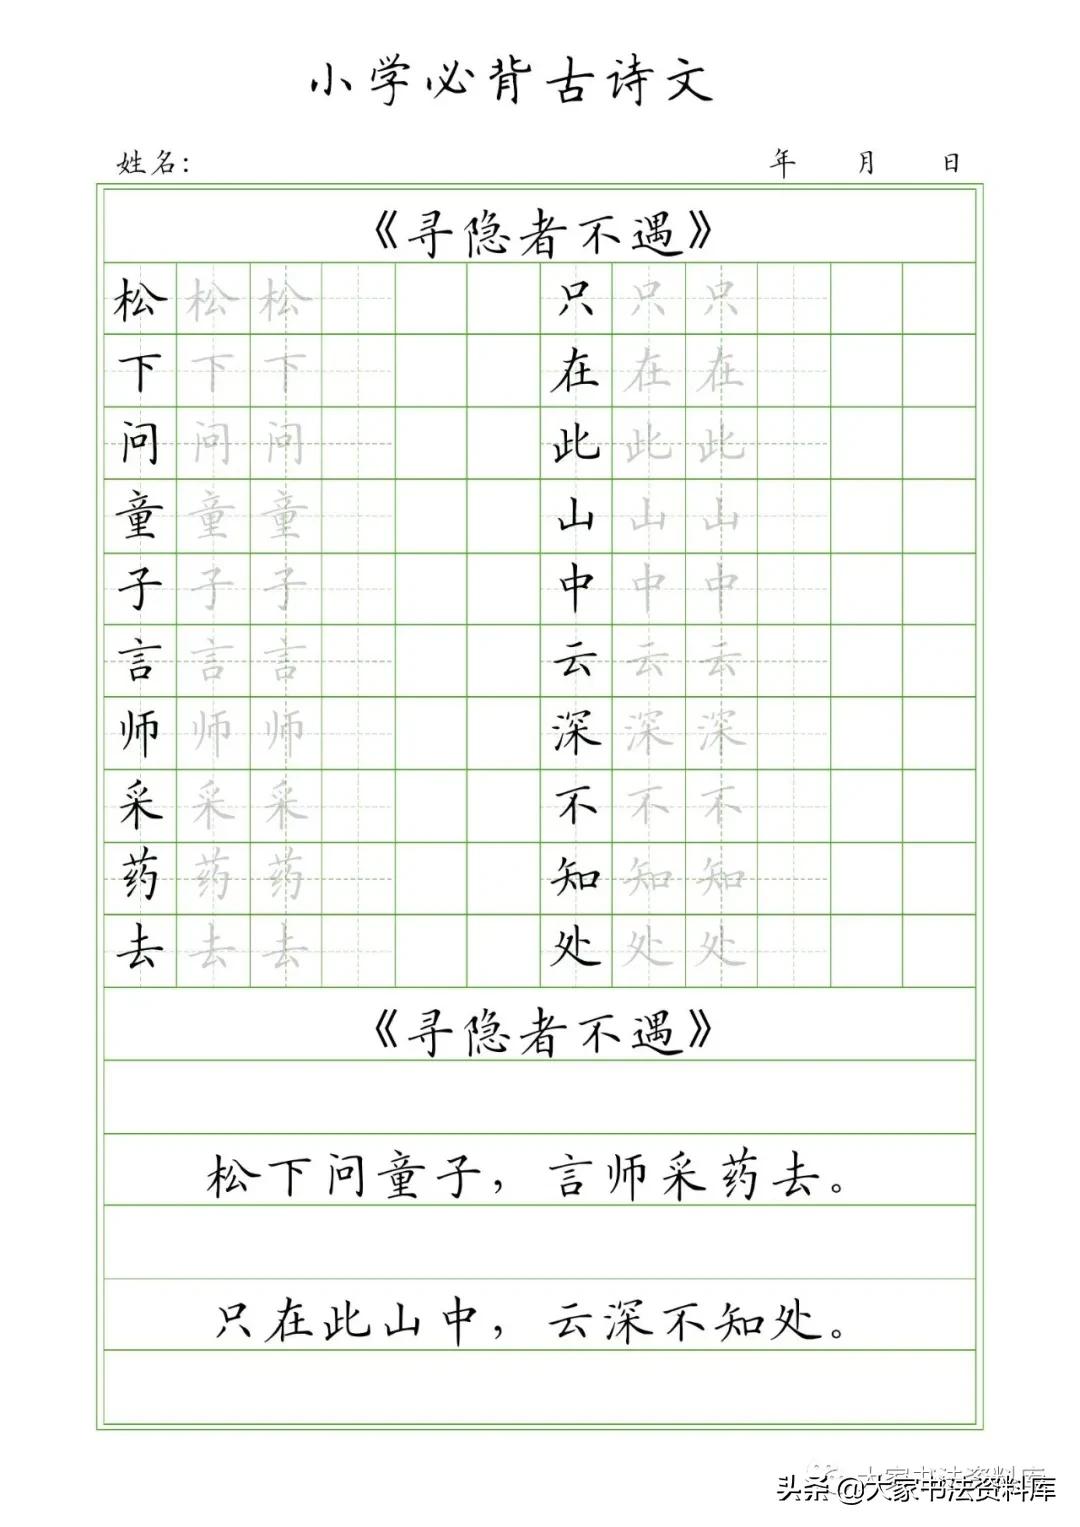 小学必背古诗文
姓名: 年 月 日
《寻隐者不遇》
松 松 松 只 只 只
下 下 下 在 在 在
问 问 问 此 此 此
童 童 童 山 山 山
子 子 子 中 中 中
言 言 言 云 云 云
师 师 师 深 深 深
采 采 采 不 不 不
药 药 药 知 知 知
去 去 去 处 处 处
《寻隐者不遇》
松下问童子，言师采药去。
只在此山中，云深不知处。
大家书法资料库
头条 @大家书法资料库